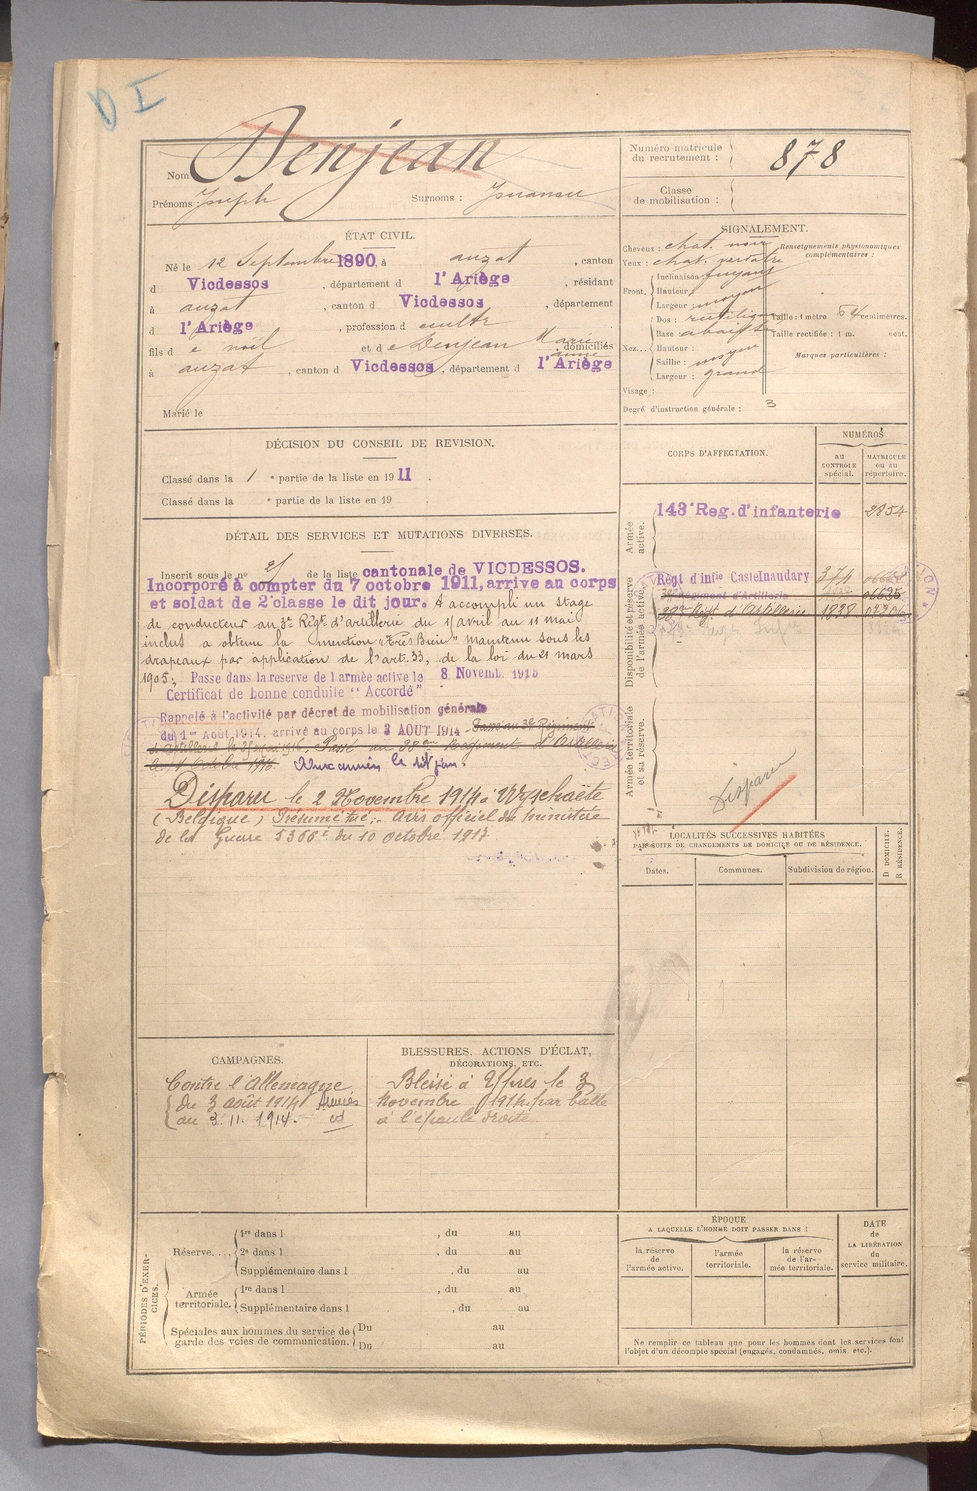 D I
Nom Denjean
Prénoms : Joseph Surnoms :
Numéro matricule
du recrutement : 878
Classe
de mobilisation :
ÉTAT CIVIL.
Né le 12 Septembre 1890, à auzat, canton
d Vicdessos, département d l'Ariège, résidant
à auzat, canton d Vicdessos, département
d l'Ariège, profession d cultr
fils de noël et de Denjean Marie anne domiciliés
à auzat, canton d Vicdessos, département d l'Ariège
Marié le
SIGNALEMENT.
Cheveux : chat. noir
Yeux : chat.
Front. Inclinaison fuyant
Hauteur
Largeur : moyen
Nez... Dos : rectiligne
Base abaissée
Hauteur :
Saillie : moyen
Largeur : grand
Visage :
Degré d'instruction générale : 3
Renseignements physionomiques
complémentaires :
Taille : 1 mètre 64 centimètres.
Taille rectifiée : 1 m. cent.
Marques particulières :
DÉCISION DU CONSEIL DE REVISION.
Classé dans la 1 e partie de la liste en 1911.
Classé dans la e partie de la liste en 19
DÉTAIL DES SERVICES ET MUTATIONS DIVERSES.
Inscrit sous le no de la liste cantonale de VICDESSOS.
Incorporé à compter du 7 octobre 1911, arrive au corps
et soldat de 2e classe le dit jour. A accompli un stage
de conducteur au 3e Régt d'artillerie du 1 avril au 11 mai
inclus a obtenu la mention "Très Bien" Maintenu sous les
drapeaux par application de l'art. 33, de la loi du 21 mars
1905; Passe dans la reserve de l'armée active le 8 Novemb. 1913
Certificat de bonne conduite "Accordé"
Rappelé à l'activité par décret de mobilisation générale
du 1er Août 1914. arrivé au corps le 3 AOUT 1914. Passé au 3e Régiment
d'Artillerie Passé au 38eme Régiment d'Artillerie
le Octobre 1915. Aux armées le dit jour.
Disparu le 2 Novembre 1914 à Wyschaëte
(Belgique) Présumé tué;- Avis officiel du ministère
de la Guerre du 10 Octobre 1917
CORPS D'AFFECTATION.
NUMÉROS
au
CONTRÔLE
spécial.
MATRICULE
ou au
répertoire.
Armée
active.
143e Reg. d'infanterie 2854
Disponibilité et réserve
de l'armée active.
Régt d'infie Castelnaudary 374
Régiment d'Artillerie
38me Régt d'Artillerie 1828
Armée territoriale
et sa réserve.
Disparu
LOCALITÉS SUCCESSIVES HABITÉES
PAR SUITE DE CHANGEMENTS DE DOMICILE OU DE RÉSIDENCE.
Dates. Communes. Subdivision de région.
D DOMICILE.
R RÉSIDENCE.
CAMPAGNES.
Contre l'Allemagne
du 3 août 1914 Armées
au 3. 11. 1914.
BLESSURES, ACTIONS D'ÉCLAT,
DÉCORATIONS, ETC.
Blessé à Ypres le 3
Novembre 1914 par balle
à l'épaule droite.
PÉRIODES D'EXERCICES.
Réserve.... 1re dans l , du au
2e dans l , du au
Supplémentaire dans l , du au
Armée
territoriale. 1re dans l , du au
Supplémentaire dans l , du au
Spéciales aux hommes du service de
garde des voies de communication. Du au
Du au
ÉPOQUE
A LAQUELLE L'HOMME DOIT PASSER DANS :
la réserve
de
l'armée active.
l'armée
territoriale.
la réserve
de l'ar-
mée territoriale.
DATE
de
LA LIBÉRATION
du
service militaire.
Ne remplir ce tableau que pour les hommes dont les services font
l'objet d'un décompte spécial (engagés, condamnés, omis, etc.).